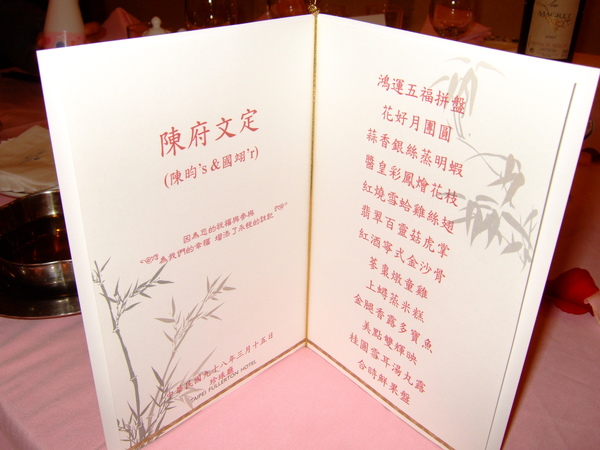 陳府文定
(陳昀's & 國翊'r)
因為您的祝福與參與
為我們的幸福 增添了永恆的註記
中華民國九十八年三月十五日
珍珠廳
TAIPEI FULLERTON HOTEL
鴻運五福拼盤
花好月團圓
蒜香銀絲蒸明蝦
醬皇彩鳳燴花枝
紅燒雪蛤雞絲翅
翡翠百靈菇虎掌
紅酒寧式金沙骨
蔘棗燉童雞
上蟳蒸米糕
金腿香露多寶魚
美點雙輝映
桂圓雪耳湯丸露
合時鮮果盤